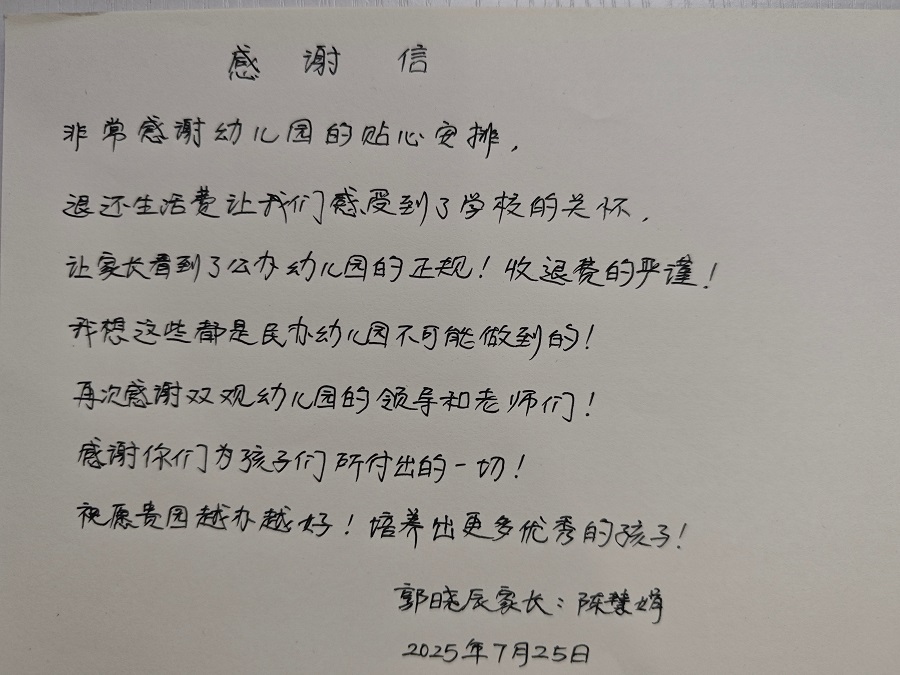 感谢信
非常感谢幼儿园的贴心安排，
退还生活费让我们感受到了学校的关怀，
让家长看到了公办幼儿园的正规！收退费的严谨！
我想这些都是民办幼儿园不可能做到的！
再次感谢双观幼儿园的领导和老师们！
感谢你们为孩子们所付出的一切！
祝愿贵园越办越好！培养出更多优秀的孩子！
郭晓辰家长：陈慧娟
2025年7月25日